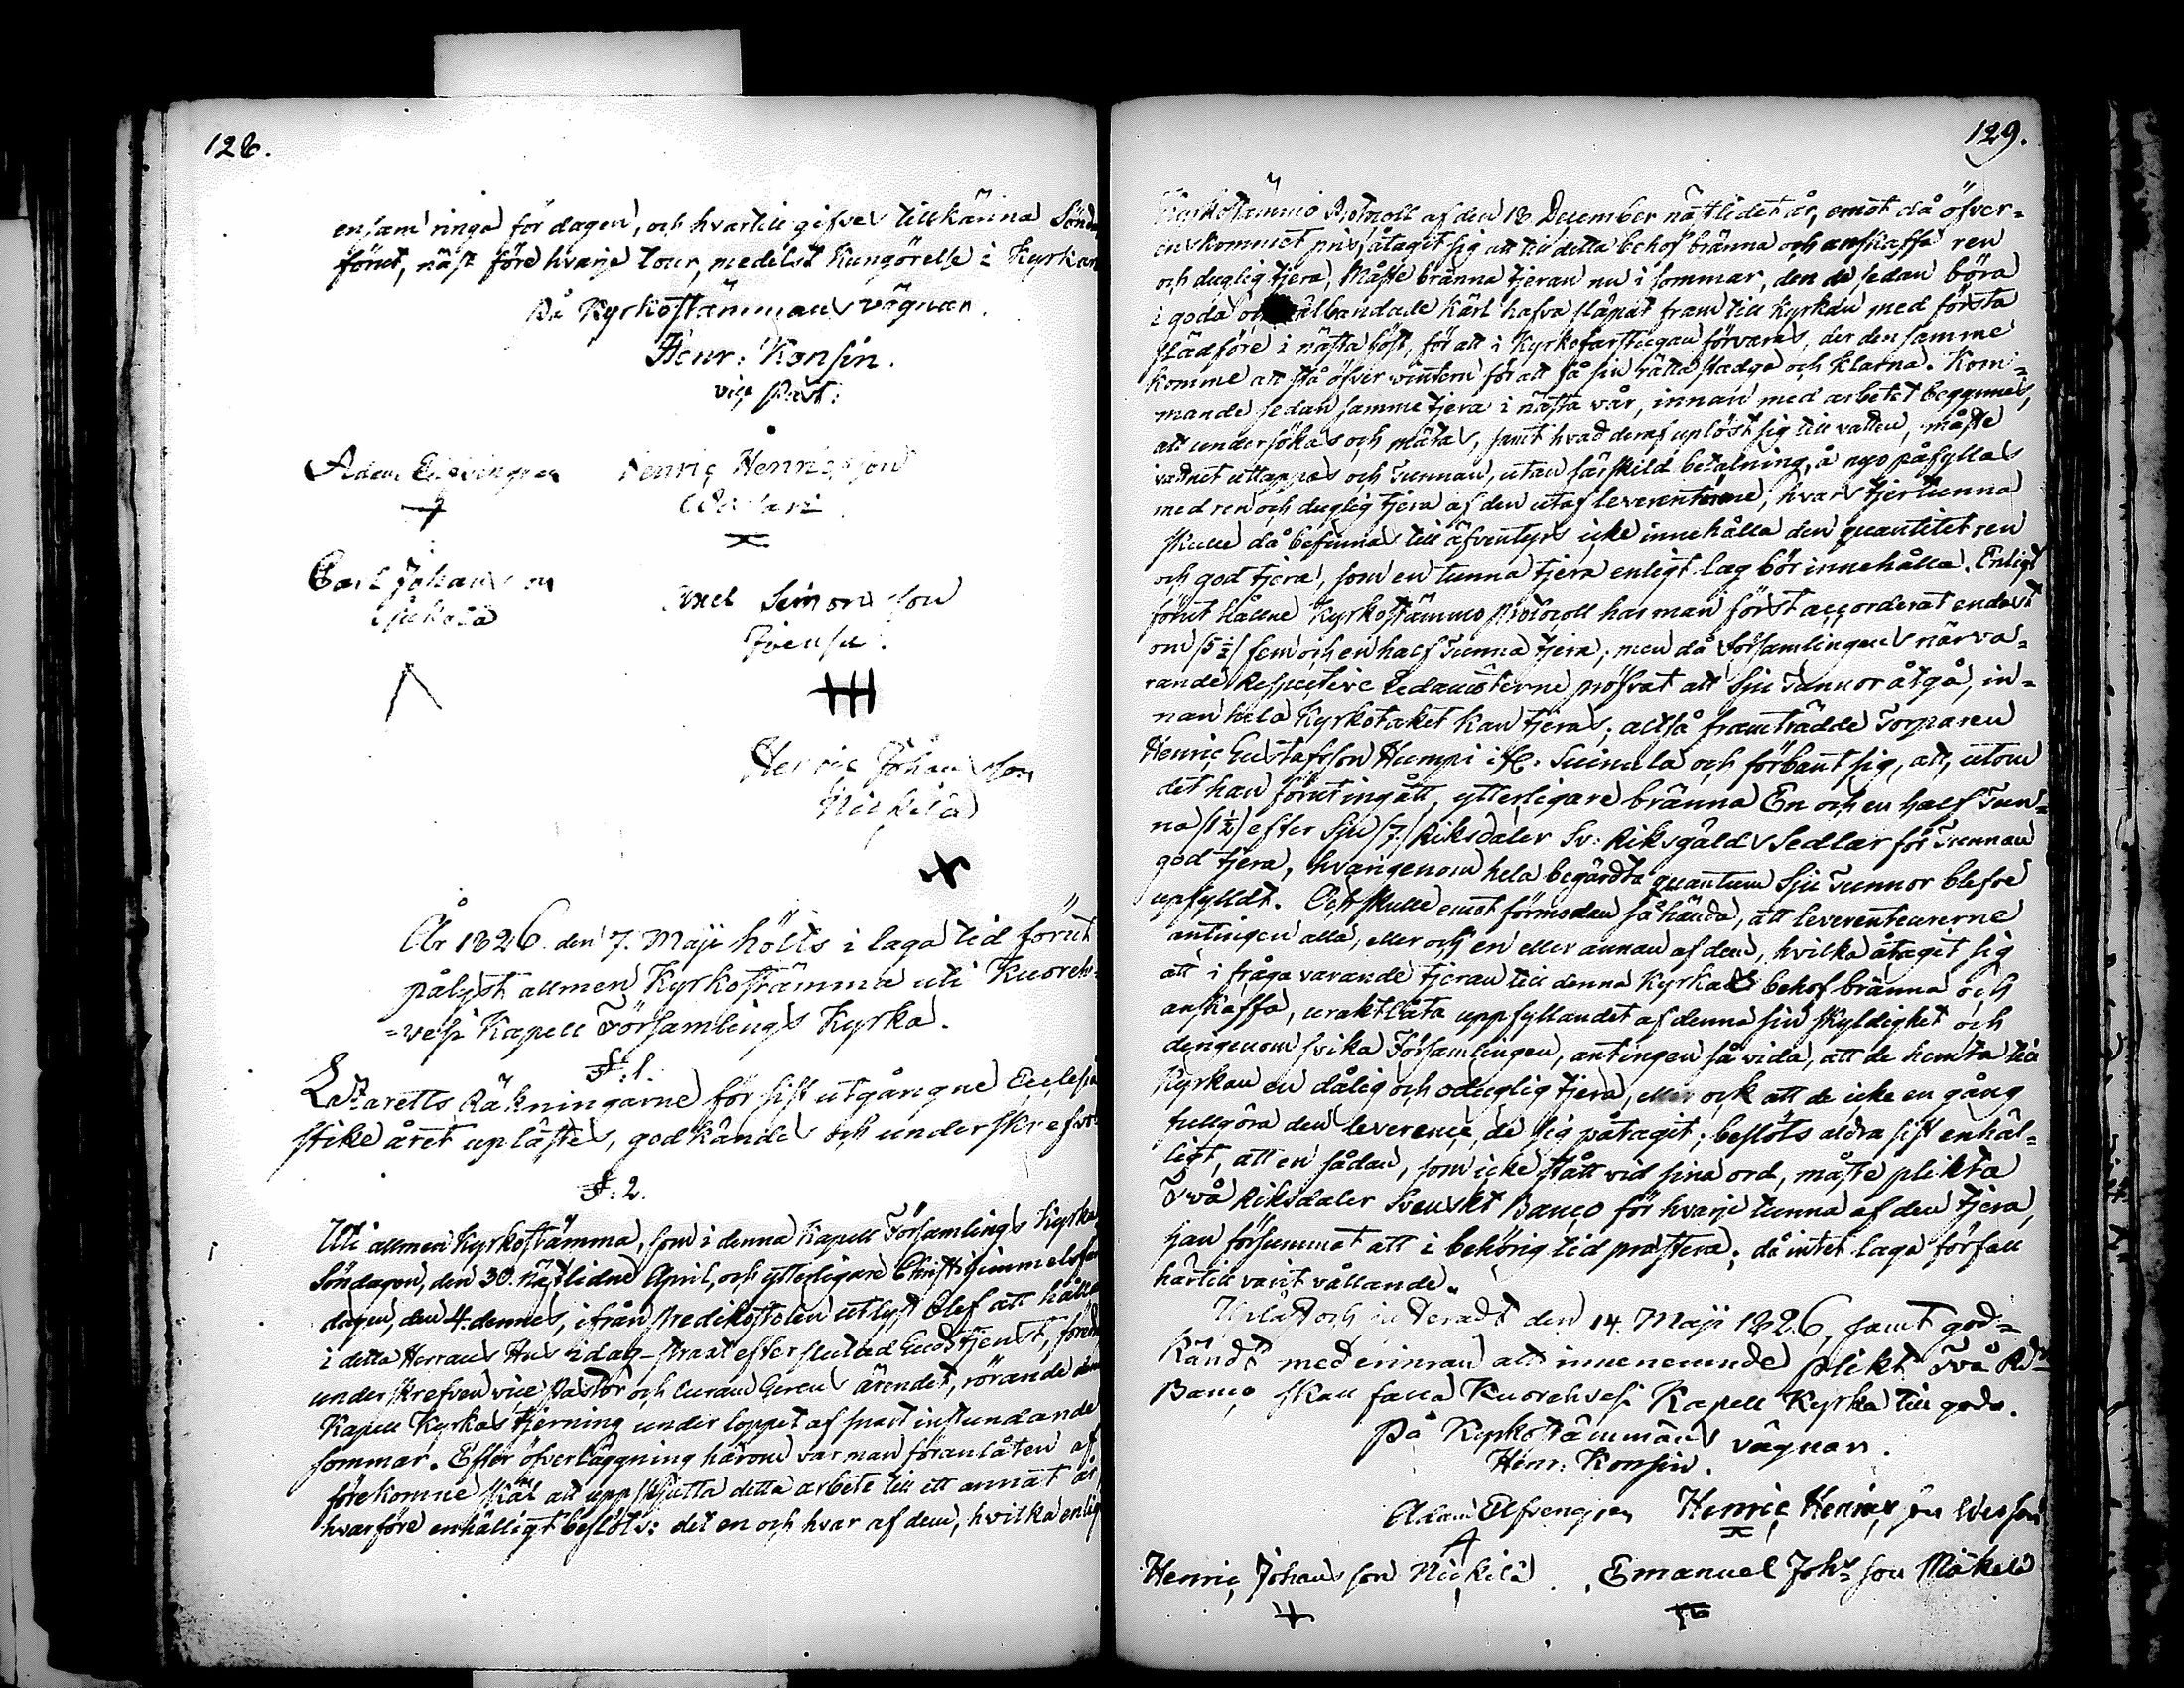 128.
ensam ringa för dagen, och hvartill gifves tillkänna Sönd
förut, näst före hvarje tour, medelst Kungörelse i Kyrkan
På Kyrkostämmans vägnar.
Henr: Konsin.
vice Past:
Adam Elfvengren Henric Henricsson
Carl Johansson
Axel Simonsson
Henric Johansson
Nickilä
År 1826. den 7. Maji hölts i laga tid förut
pålyst allmen Kyrkostämma uti Kuoreh=
=vesi Kapell Församlings Kyrka.
§:1.
Lazaretts Räkningarne för sist utgångne Ecclesia
stike året uplästes, godkändes och underskrefvos
§:2.
Uti allmen Kyrkostämma, som i denna Kapell Församlings Kyrka
Söndagen, den 30. nästlidne April, och ytterligare Christi himmelsfärds
dagen, den 4. dennes, ifrån Predikostolen utlyst blef att hålla
i detta Herrans Hus idag straxt efter slutad Gudstjenst, föredr
underskrefven vice Pastor och Curam Gerens ärendet, rörande denna
Kapell Kyrkas tjerning under loppet af snart instundande
sommar. Efter öfverläggning härom var man föranlåten af
förekomne skäl att uppskjutta detta arbete till ett annat år
hvarföre enhälligt beslöts: det en och hvar af dem, hvilka enlig
129.
Kyrkostämmo Protocoll af den 18 December nästlidet år, emot då öfver=
enskommet pris åtaget sig att till detta behof bränna och anskaffa ren
och duglig tjera, Måste bränna tjeran nu i sommar, den de sedan böra
i goda och välbandade Kärl hafva släpat fram till Kyrkan med första
slädföre i nästa höst, för att i Kyrkofarstugan förvaras, der densamme
komme att stå öfver vintern för att få sin rätta stadga och klarna. Kom=
mande sedan samme tjera i nästa vår, innan med arbetet begynnes,
att undersökas och mätas, samt hvad deraf uplöst sig till vatten, måste
vattnet uttappas och Tunnan, utan särskild betalning, å nyo påfyllas
med ren och duglig tjera af den utaf leverenterne, hvars tjertunna
skulle då befinnas till äfventyrs icke innehålla den quantitet ren
och god tjera, som en tunna tjera enligt lag bör innehålla. Enligt
förut hållne Kyrkostämmo Protocoll har man först accorderat endast
om /5½/ fem och en half Tunna tjera; men då Församlingens närva=
rande Respective Ledamöterne pröfvat att Sju Tunnor åtgå, in=
nan hela Kyrkotaket kan tjeras; altså framträdde Torparen
Henric Gustafsson Humpi if. Suinula och förbant sig, att, utom
det han förut ingått, ytterligare bränna En och en half Tun=
na /1½/ efter Sju /7./ Riksdaler Sv: Riksgälds Sedlar för Tunnan
god tjera, hvarigenom hela begärdta quantum Sju Tunnor blefve
upfylldt. Och skulle emot förmodan så hända, att leverenteurerne
antingen alla, eller och en eller annan af dem, hvilka åtaget sig
att i fråga varande tjeran till denna Kyrkas behof bränna och
anskaffa, uraktlåta uppfyllandet af denna sin skyldighet och
derigenom svika Församlingen, antingen så vida, att de hemta till
Kyrkan en dålig och oduglig tjera, eller ock att de icke en gång
fullgöra den leverence, de sig påtagit; beslöts aldra sist enhäl=
ligt, att en sådan, som icke stått vid sina ord, måste plikta
Två Riksdaler Svenskt Banco för hvarje tunna af den tjera,
han försummat att i behörig tid præstera; då intet laga förfall
härtill varit vållande.
Upläst och justeradt den 14. Maji 1826, samt god=
kändt med erinran att innenemnde plikt Två Rd
Banco skall falla Kuorehvesi Kapell Kyrka till godo.
På Kyrkostämmans vägnar.
Henr: Konsin.
Adam Elfvengren Henric Henricsson
Henric Johansson Nickilä. Emanuel Johsson Mäkelä